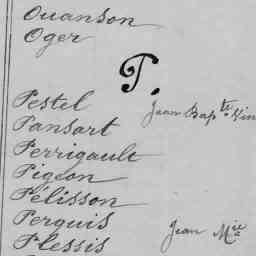 Ouanson
Oger
P.
Pestel Jean Bapte Vin
Pansart
Perrigault
Pigeon
Pélisson
Perquis Jean Mie
Plessis